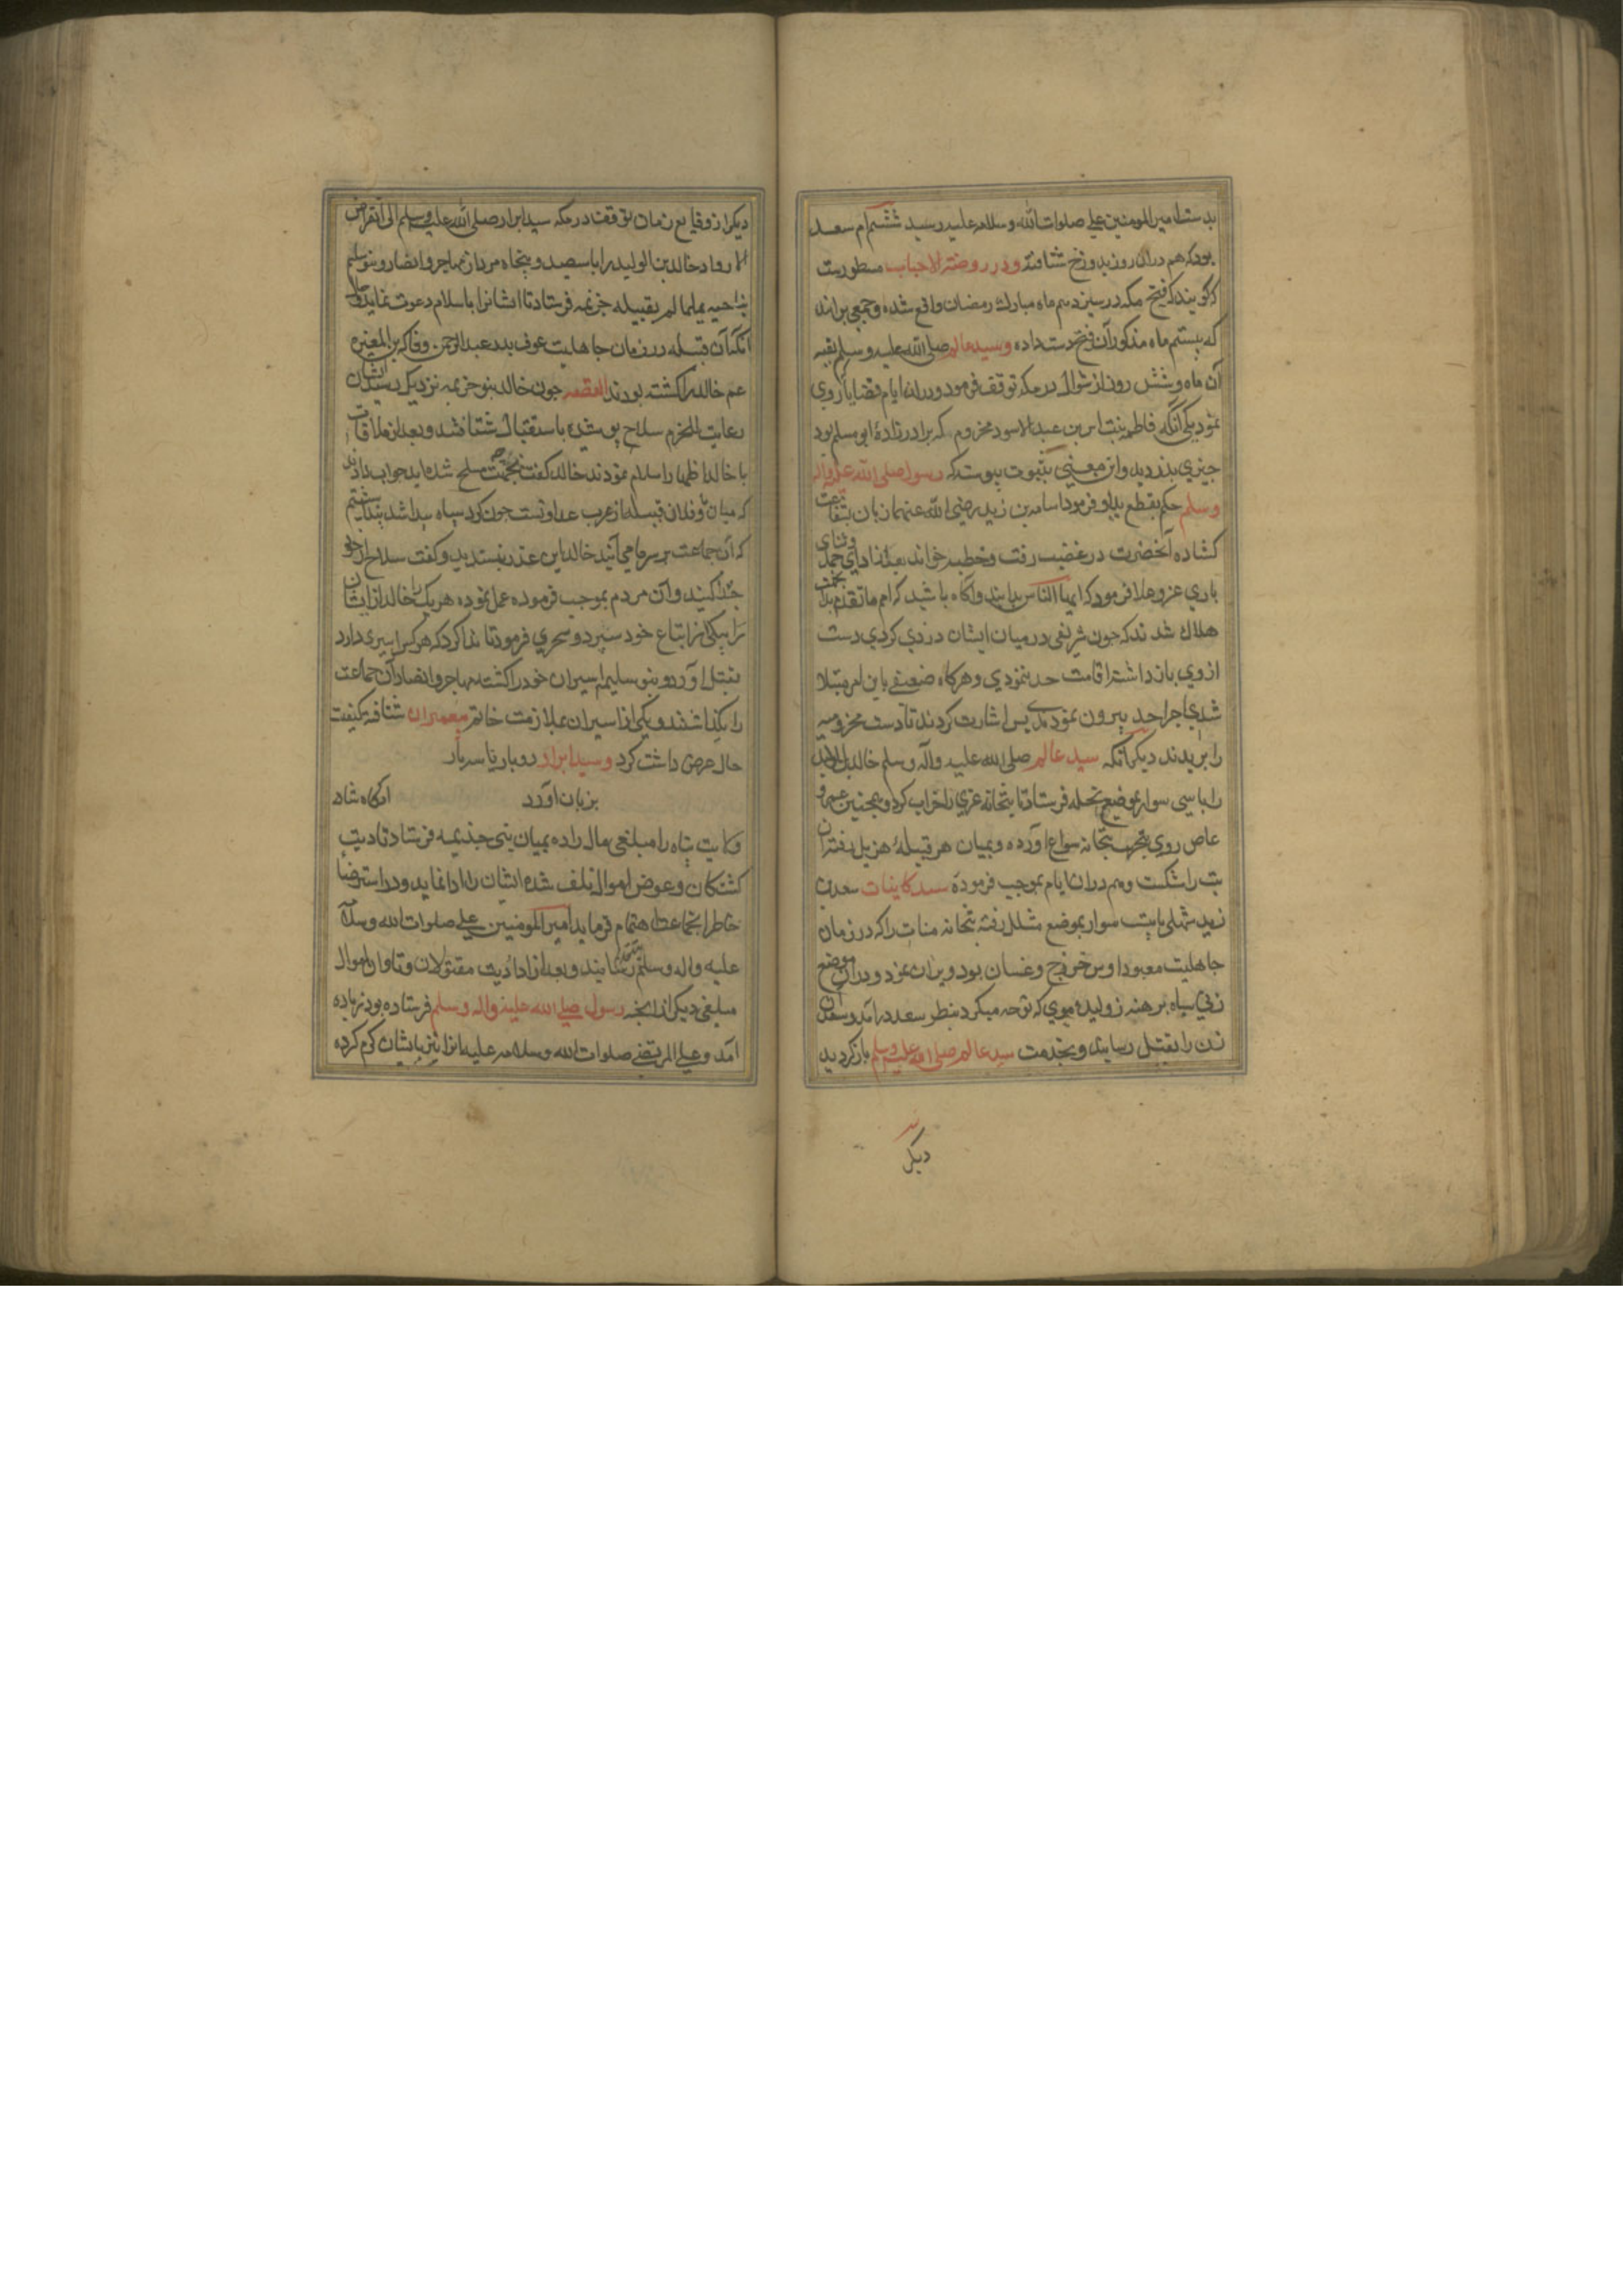 بدست امیر المومنین علی صلوات الله و سلامه علیه رسید ششم ام سعد
بود که هم دران روز بدوزخ شتافته و در روضة الاحباب مسطورست
که کویند که فتح مکه در سیزدهم ماه مبارک رمضان واقع شده و جمعی برانند
که بیستم ماه مذکور آن فتح دست داده و سید عالم صلی الله علیه و سلم بقیه
آن ماه و شش روز از شوال در مکه توقف فرمود و دران ایام قضایا روی
نمود یکی انکه فاطمه بنت اسد بن عبد الاسود مخزوم که برادرزادۀ ابو سلم بود
چیزی بدزدید و این معنی بثبوت پیوست که رسول صلی الله علیه و اله
و سلم حکم بقطع ید او فرمود اسامه بن زید رضی الله عنهما زبان بشفاعت
کشاده آنحضرت در غضب رفت و خطبه خواند بعد از ادای حمد و ثنای
باری عز و علا فرمود که ایها الناس بدانید و آکاه باشید که امم ما تقدم
هلاک شدند که چون شریفی در میان ایشان دزدی کردی دست
از وی بازداشته اقامت حد ننمودی و هرکاه ضعیفی باین امر مبتلا
شدی اجرا حد پیرون نمودندی پس اشارت کردند تا دست مخزومیه
را بریدند دیکر انکه سید عالم صلی الله علیه و آله و سلم خالد بن الولید
را با سی سوار بموضع نخله فرستاد تا بتخانه عزی را خراب کرد و همچنین عمرو
عاص روی بتخانه سواع اورده و بمیان هر قبیلۀ هزیل رفته ان
بت را شکست و هم دران ایام بموجب فرموده سید کاینات سعد بن
زید شهلی با بیست سوار بموضع مشلل رفته بتخانه منات را که در زمان
جاهلیت معبود اوس خزرج و غسان بود ویران نمود و دران موضع
زنی سیاه برهنه ژولیده موی که نوحه میکرد بنظر سعد درآمد و سعد آن
زن را بقتل رسانید و بخدمت سید عالم صلی الله علیه و سلم بازکردید
دیکر
دیکر از وقایع زمان توقف در مکه سید ابرار صلی الله علیه و سلم الی انقراض
خالد بن الولید را با سیصد و پنجاه مرد از مهاجر و انصار و بنو سلیم
بناحیه یلملم بقبیله خزیمه فرستاد تا ایشانرا باسلام دعوت نماید
انکه آن قبیله در زمان جاهلیت عوف پدر عبد الرحمن و فاکه بن المغیره
عم خالد را کشته بودند القصه چون خالد بنو خزیمه نزدیک رسید ایشان
رعایت للحزم سلاح پوشیده باستقبال شتافتند و بعد از ملاقات
با خالد اظهار اسلام نمودند خالد کفت بجهت چه مسلح شده اید جواب دادند
که میان ما و فلان قبیله از عرب عداوتست چون کرد سپاه پیدا شد پنداشتیم
که آن جماعت بر سر ما می آیند خالد این عذر نپسندید و کفت سلاح از خود
جدا کنید و آن مردم بموجب فرموده عمل نموده هر یک را خالد از ایشان
را بیکی از اتباع خود سپرد و سحری فرمود تا ندا کرد که هرکس اسیری دارد
بقتل اورد و بنو سلیم اسیران خود را کشته مهاجر و انصار آن جماعت
را بکذاشتند و یکی از اسیران بملازمت خاتم پیغمبران شتافته کیفیت
حال عرض داشت کرد و سید ابرار دو بار یا سه بار
بزبان اورد       انکاه شاه
ولایت پناه را مبلغی مال داده بمیان بنی جذیمه فرستاد تا دیت
کشتکان و عوض اموال تلف شده ایشان را ادا نماید و در استرضا
خاطر انجماعت اهتمام فرماید امیر المومنین علی صلوات الله و سلامه
علیه و اله و سلم بتقدیم رسانیند و بعد از ادا دیت مقتولان و تاوان اموال
مبلغی دیکر از انچه رسول صلی الله علیه و اله و سلم فرستاده بود زیاده
امد و علی المرتضی صلوات الله و سلامه علیه انرا نیز بایشان کرم کرده